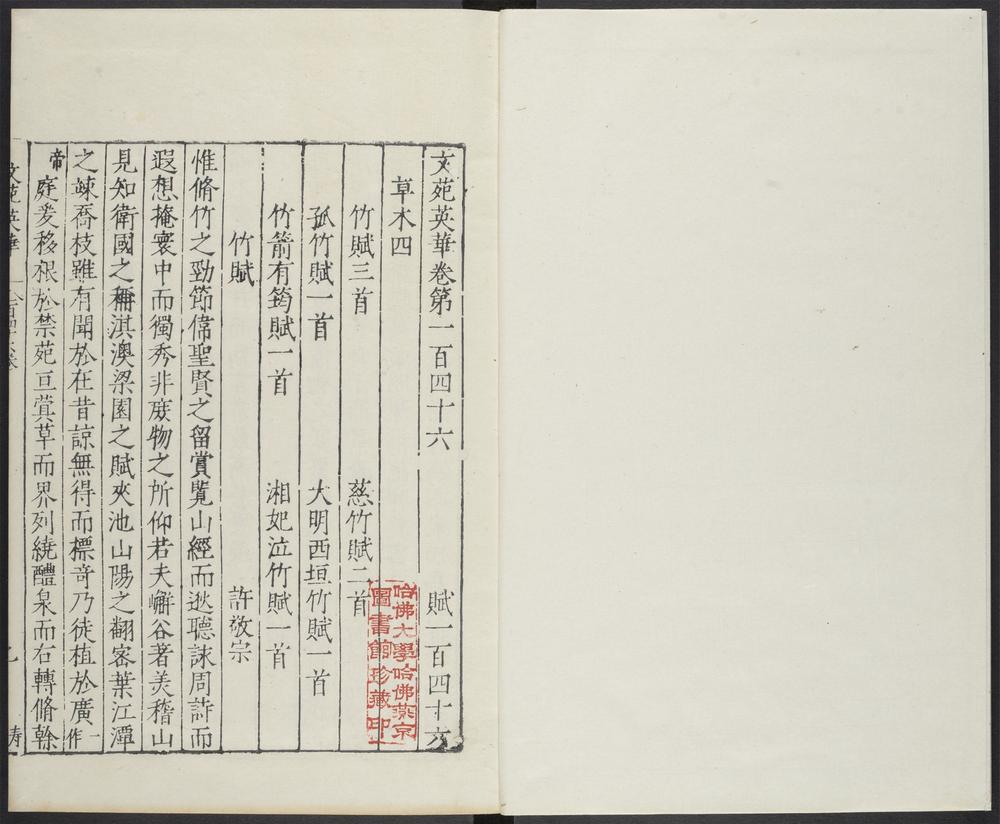 文苑英華卷第一百四十六 賦一百四十六
草木四
竹賦三首 慈竹賦二首
孤竹賦一首 大明西垣竹賦一首
竹箭有筠賦一首 湘妃泣竹賦一首
竹賦 許敬宗
惟脩竹之勁節偉聖賢之留賞覽山經而逖聽詠周詩而
遐想掩寰中而獨秀非庶物之所仰若夫嶰谷著美稽山
見知衛國之稱淇澳梁園之賦夾池山陽之翻密葉江潭
之竦喬枝雖有聞於在昔諒無得而標奇乃徒植於廣一作
帝庭爰移根於禁苑亘蓂草而界列繞醴泉而右轉脩榦
文苑英華
哈佛大學哈佛燕京
圖書館珍藏印